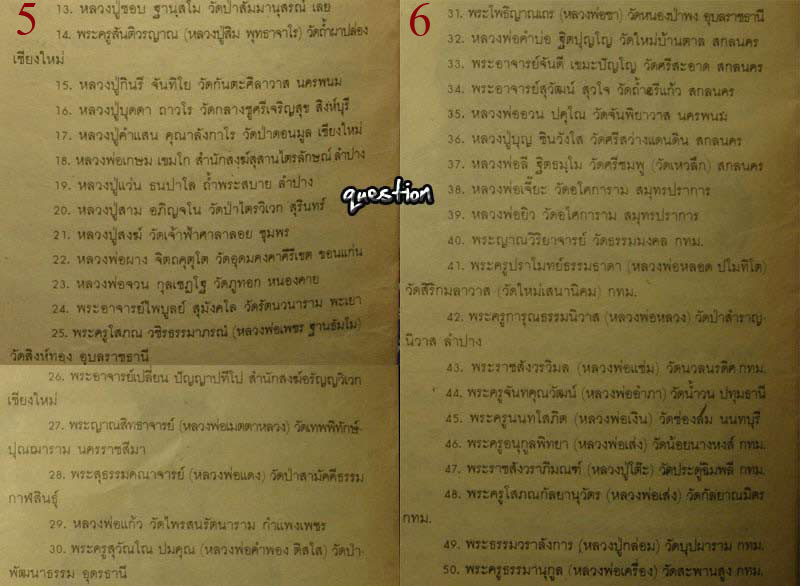 5
13. หลวงปู่ชอบ ฐานสุโม วัดป่าสัมมานุสรณ์ เลย
14. พระครูสันติวรญาณ (หลวงปู่สิม พุทธาจาโร) วัดถ้ำผาปล่อง
เชียงใหม่
15. หลวงปู่กินรี จันทิโย วัดกันตะศิลาวาส นครพนม
16. หลวงปู่บุดดา ถาวโร วัดกลางชูศรีเจริญสุข สิงห์บุรี
17. หลวงปู่คำแสน คุณาลังกาโร วัดป่าดอนมูล เชียงใหม่
18. หลวงพ่อเกษม เขมโก สำนักสงฆ์สุสานไตรลักษณ์ ลำปาง
19. หลวงปู่แว่น ธนปาโล ถ้ำพระสบาย ลำปาง
20. หลวงปู่สาม อภิญจโน วัดป่าไตรวิเวก สุรินทร์
21. หลวงปู่สงฆ์ วัดเจ้าฟ้าศาลาลอย ชุมพร
22. หลวงพ่อผาง จิตฤคุตฺโต วัดอุดมคงคาคีรีเขต ขอนแก่น
23. หลวงพ่อจวน กุลเชฏโฐ วัดภูทอก หนองคาย
24. พระอาจารย์ไพบูลย์ สุมังคโล วัดรัตนวนาราม พะเยา
25. พระครูโสภณ วชิรธรรมาภรณ์ (หลวงพ่อเพชร ฐานธัมโม)
วัดสิงห์ทอง อุบลราชธานี
26. พระอาจารย์เปลี่ยน ปัญญาปทีโป สำนักสงฆ์อรัญญวิเวก
เชียงใหม่
27. พระญาณสิทธาจารย์ (หลวงพ่อเมตตาหลวง) วัดเทพพิทักษ์-
ปุณณาราม นครราชสีมา
28. พระสุธรรมคณาจารย์ (หลวงพ่อแดง) วัดป่าสามัคคีธรรม
กาฬสินธุ์
29. หลวงพ่อแก้ว วัดไพรสนรัตนาราม กำแพงเพชร
30. พระครูสุวัณโณ ปมคุณ (หลวงพ่อคำพอง ติสโส) วัดป่า-
พัฒนาธรรม อุดรธานี
question
6
31. พระโพธิญาณเถร (หลวงพ่อชา) วัดหนองป่าพง อุบลราชธานี
32. หลวงพ่อคำบ่อ ฐิตปุญโญ วัดใหม่บ้านตาล สกลนคร
33. พระอาจารย์จันดี เขมะปัญโญ วัดศรีสะอาด สกลนคร
34. พระอาจารย์สุวัฒน์ สุวโจ วัดถ้ำศรีแก้ว สกลนคร
35. หลวงพ่ออวน ปคุโณ วัดจันทิยาวาส นครพนม
36. หลวงปู่บุญ ชินวังโส วัดศรีสว่างแดนดิน สกลนคร
37. หลวงพ่อลี ฐิตธมฺโม วัดศรีชมพู (วัดเหวลึก) สกลนคร
38. หลวงพ่อเจี๊ยะ วัดอโศการาม สมุทรปราการ
39. หลวงพ่อยิว วัดอโศการาม สมุทรปราการ
40. พระญาณวิริยาจารย์ วัดธรรมมงคล กทม.
41. พระครูปราโมทย์ธรรมธาดา (หลวงพ่อหลอด ปโมทิโต)
วัดสิริกมลาวาส (วัดใหม่เสนานิคม) กทม.
42. พระครูการุณธรรมนิวาส (หลวงพ่อหลวง) วัดป่าสำราญ-
นิวาส ลำปาง
43. พระราชสังวรวิมล (หลวงพ่อแช่ม) วัดนวลนรดิศ กทม.
44. พระครูจันทคุณวัฒน์ (หลวงพ่ออำภา) วัดน้ำวน ปทุมธานี
45. พระครูนนทโสภิต (หลวงพ่อเงิน) วัดช่องลม นนทบุรี
46. พระครูอนุกูลพิทยา (หลวงพ่อเส่ง) วัดน้อยนางหงส์ กทม.
47. พระราชสังวราภิมณฑ์ (หลวงปู่โต๊ะ) วัดประดู่ฉิมพลี กทม.
48. พระครูโสภณกัลยานุวัตร (หลวงพ่อเส่ง) วัดกัลยาณมิตร
กทม.
49. พระธรรมวราลังการ (หลวงปู่กล่อม) วัดบุปผาราม กทม.
50. พระครูธรรมานุกูล (หลวงพ่อเครื่อง) วัดสะพานสูง กทม.